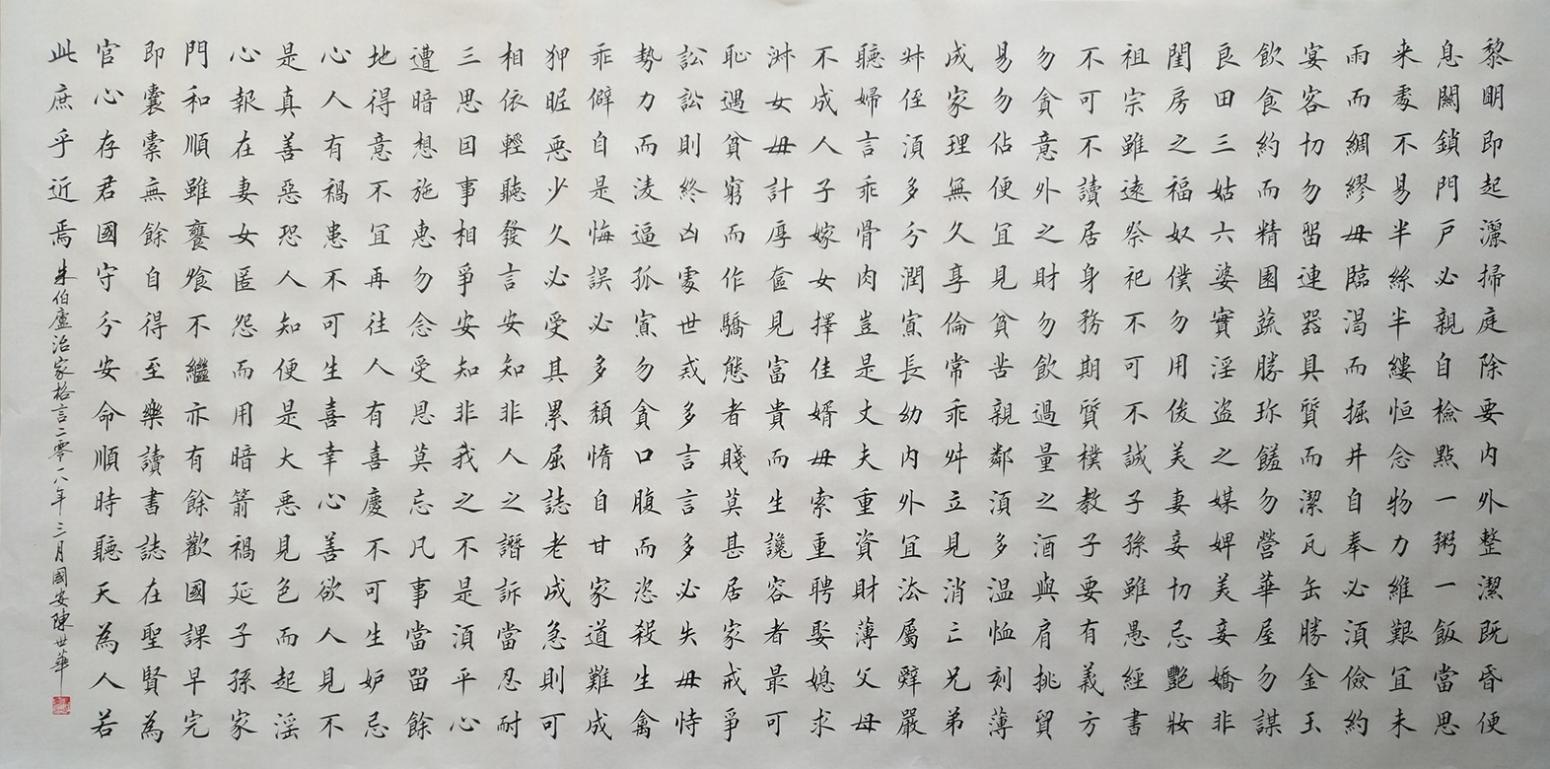 黎明即起灑掃庭除要內外整潔既昏便
息關鎖門戶必親自檢點一粥一飯當思
来處不易半絲半縷恒念物力維艱宜未
雨而綢繆毋臨渴而掘井自奉必須儉約
宴客切勿留連器具質而潔瓦缶勝金玉
飲食約而精園蔬勝珍饈勿營華屋勿謀
良田三姑六婆實淫盜之媒婢美妾嬌非
閨房之福奴僕勿用俊美妻妾切忌艷妝
祖宗雖遠祭祀不可不誠子孫雖愚經書
不可不讀居身務期質樸教子要有義方
勿貪意外之財勿飲過量之酒與肩挑貿
易勿佔便宜見貧苦親鄰須多温恤刻薄
成家理無久享倫常乖舛立見消亡兄弟
叔侄須多分潤寡長幼內外宜法屬辭嚴
聽婦言乖骨肉豈是丈夫重資財薄父母
不成人子嫁女擇佳婿毋索重聘娶媳求
淑女毋計厚奩見富貴而生讒容者最可
恥遇貧窮而作驕態者賤莫甚居家戒爭
訟訟則終凶處世戒多言言多必失毋恃
勢力而淩逼孤寡勿貪口腹而恣殺生禽
乖僻自是悔誤必多頹惰自甘家道難成
狎昵惡少久必受其累屈誌老成急則可
相依輕聽發言安知非人之譖訴當忍耐
三思因事相爭安知非我之不是須平心
遭暗想施惠勿念受恩莫忘凡事當留餘
地得意不宜再往人有喜慶不可生妒忌
心人有禍患不可生喜幸心善欲人見不
是真善惡恐人知便是大惡見色而起淫
心報在妻女匿怨而用暗箭禍延子孫家
門和順雖饔飧不繼亦有餘歡國課早完
即囊橐無餘自得至樂讀書誌在聖賢為
官心存君國守分安命順時聽天為人若
此庶乎近焉 朱伯廬治家格言二零一八年三月國安陳世華